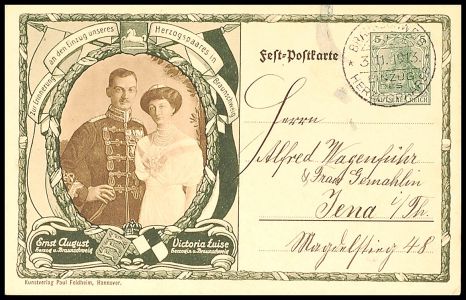 Zur Erinnerung an den Einzug unseres Herzogspaares in Braunschweig
Fest-Postkarte
3.11.1913.
EINZUG
DES
Herrn
Alfred Wagenführ
& Frau Gemahlin
Jena i/Th.
Magdelstieg 48
Ernst August
Herzog v. Braunschweig
Victoria Luise
Herzogin v. Braunschweig
Kunstverlag Paul Feldheim, Hannover.